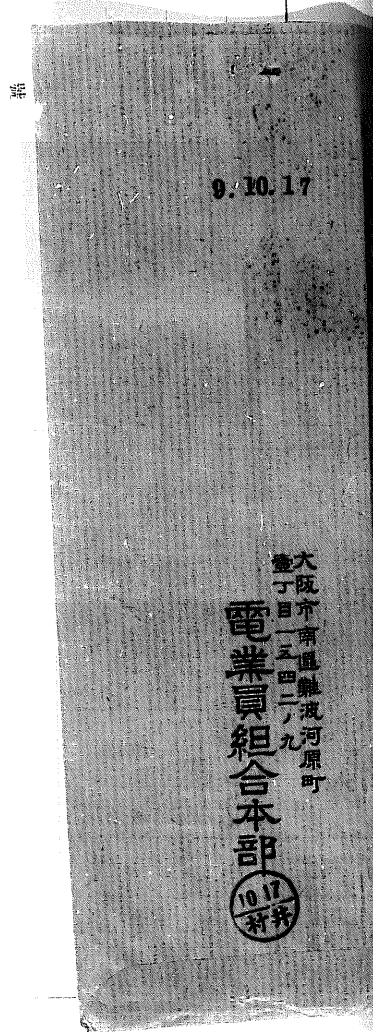 號
9.10.17
大阪市南區難波河原町
壹丁目一五四二ノ九
電業員組合本部
10 17
村井